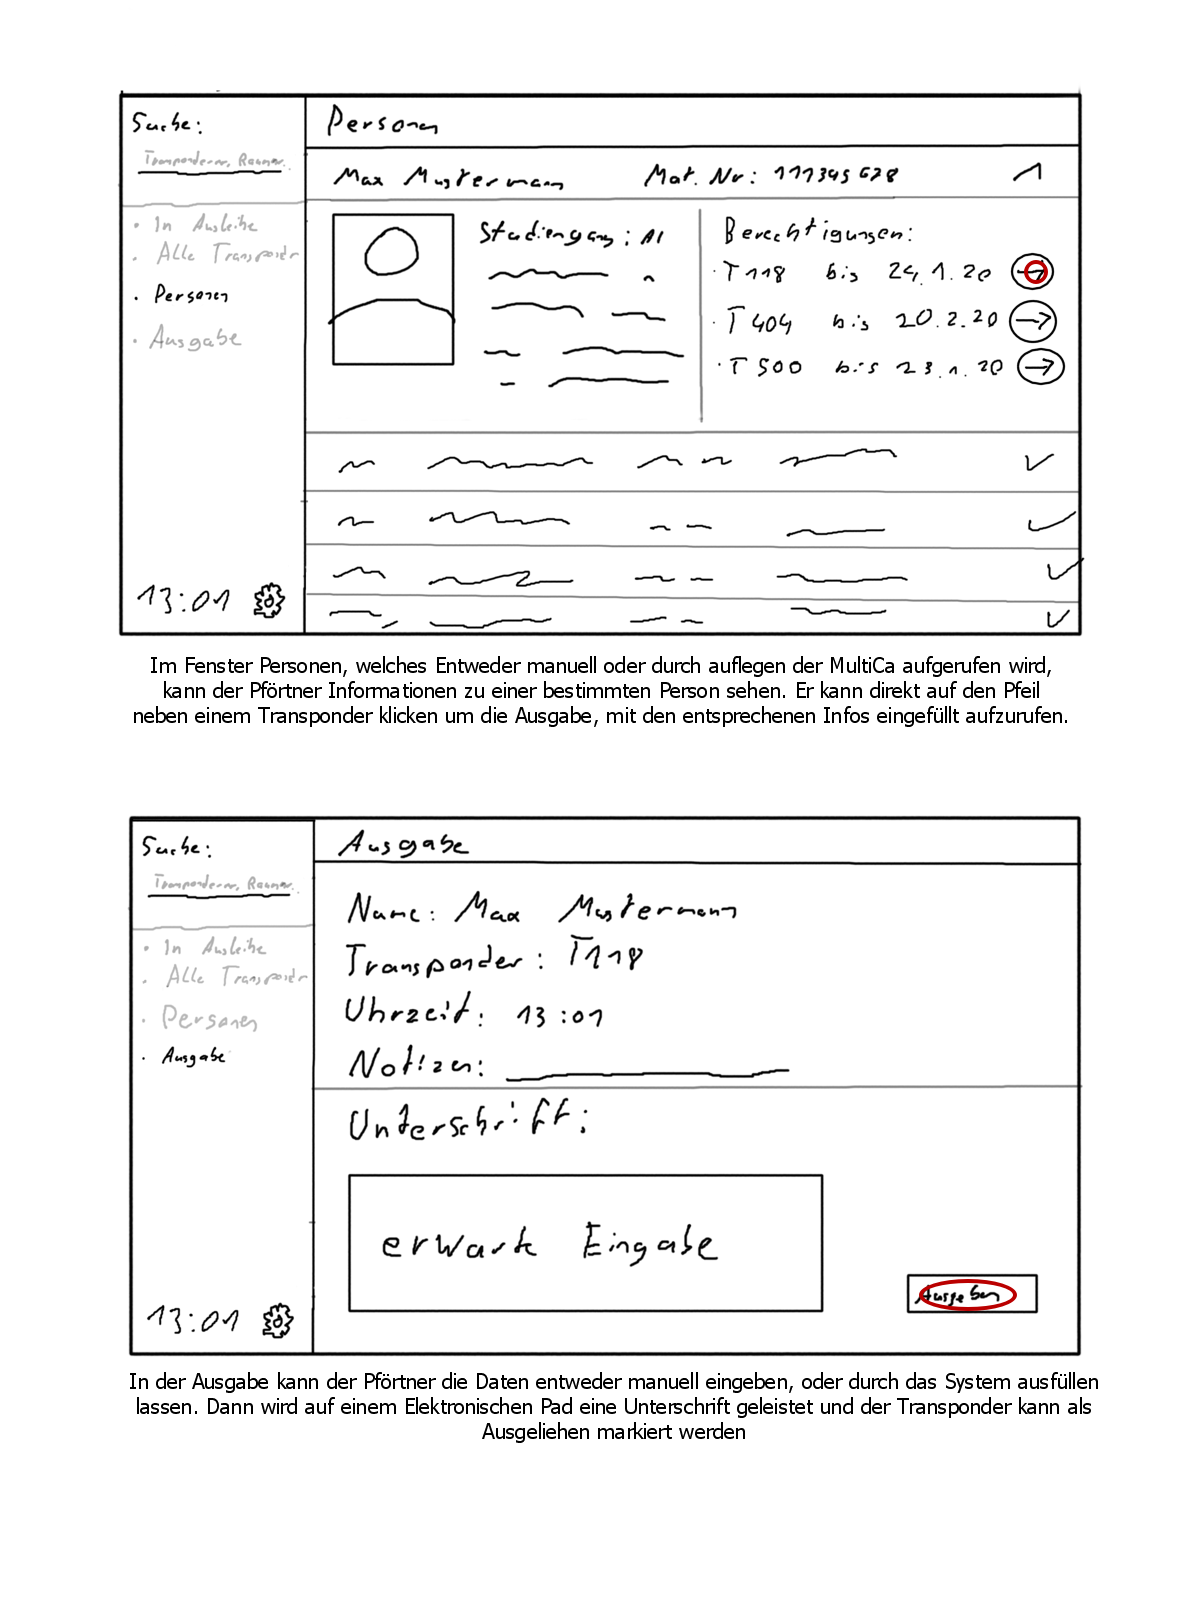 Suche:
Transpondernr, Raumnr.
In Ausleihe
Alle Transponder
Personen
Ausgabe
13:01
Personen
Max Mustermann Mat. Nr: 111345678
Studiengang: AI
Berechtigungen:
T118 bis 24.1.20
T404 bis 20.2.20
T500 bis 23.1.20
Im Fenster Personen, welches Entweder manuell oder durch auflegen der MultiCa aufgerufen wird,
kann der Pförtner Informationen zu einer bestimmten Person sehen. Er kann direkt auf den Pfeil
neben einem Transponder klicken um die Ausgabe, mit den entsprechenen Infos eingefüllt aufzurufen.
Suche:
Transpondernr, Raumnr.
In Ausleihe
Alle Transponder
Personen
Ausgabe
13:01
Ausgabe
Name: Max Mustermann
Transponder: T118
Uhrzeit: 13:01
Notizen:
Unterschrift:
erwarte Eingabe
Ausgeben
In der Ausgabe kann der Pförtner die Daten entweder manuell eingeben, oder durch das System ausfüllen
lassen. Dann wird auf einem Elektronischen Pad eine Unterschrift geleistet und der Transponder kann als
Ausgeliehen markiert werden